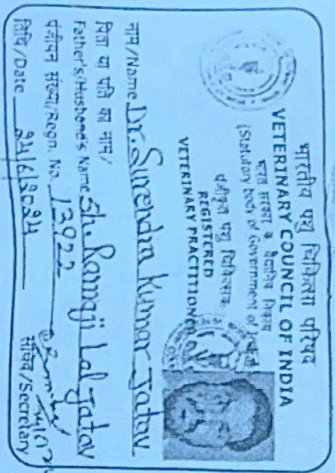 भारतीय पशु चिकित्सा परिषद
VETERINARY COUNCIL OF INDIA
भारत सरकार का वैधानिक निकाय
(Statutory body of Government of
पंजीकृत पशु चिकित्सक
REGISTERED
VETERINARY PRACTITIONER
नाम/Name Dr. Surendra Kumar Jatav
पिता या पति का नाम/
Father's/Husband's Name Sh. Ramji Lal Jatav
पंजीयन संख्या/Regn. No. 13922
तिथि/Date 24/6/2024 सचिव/Secretary